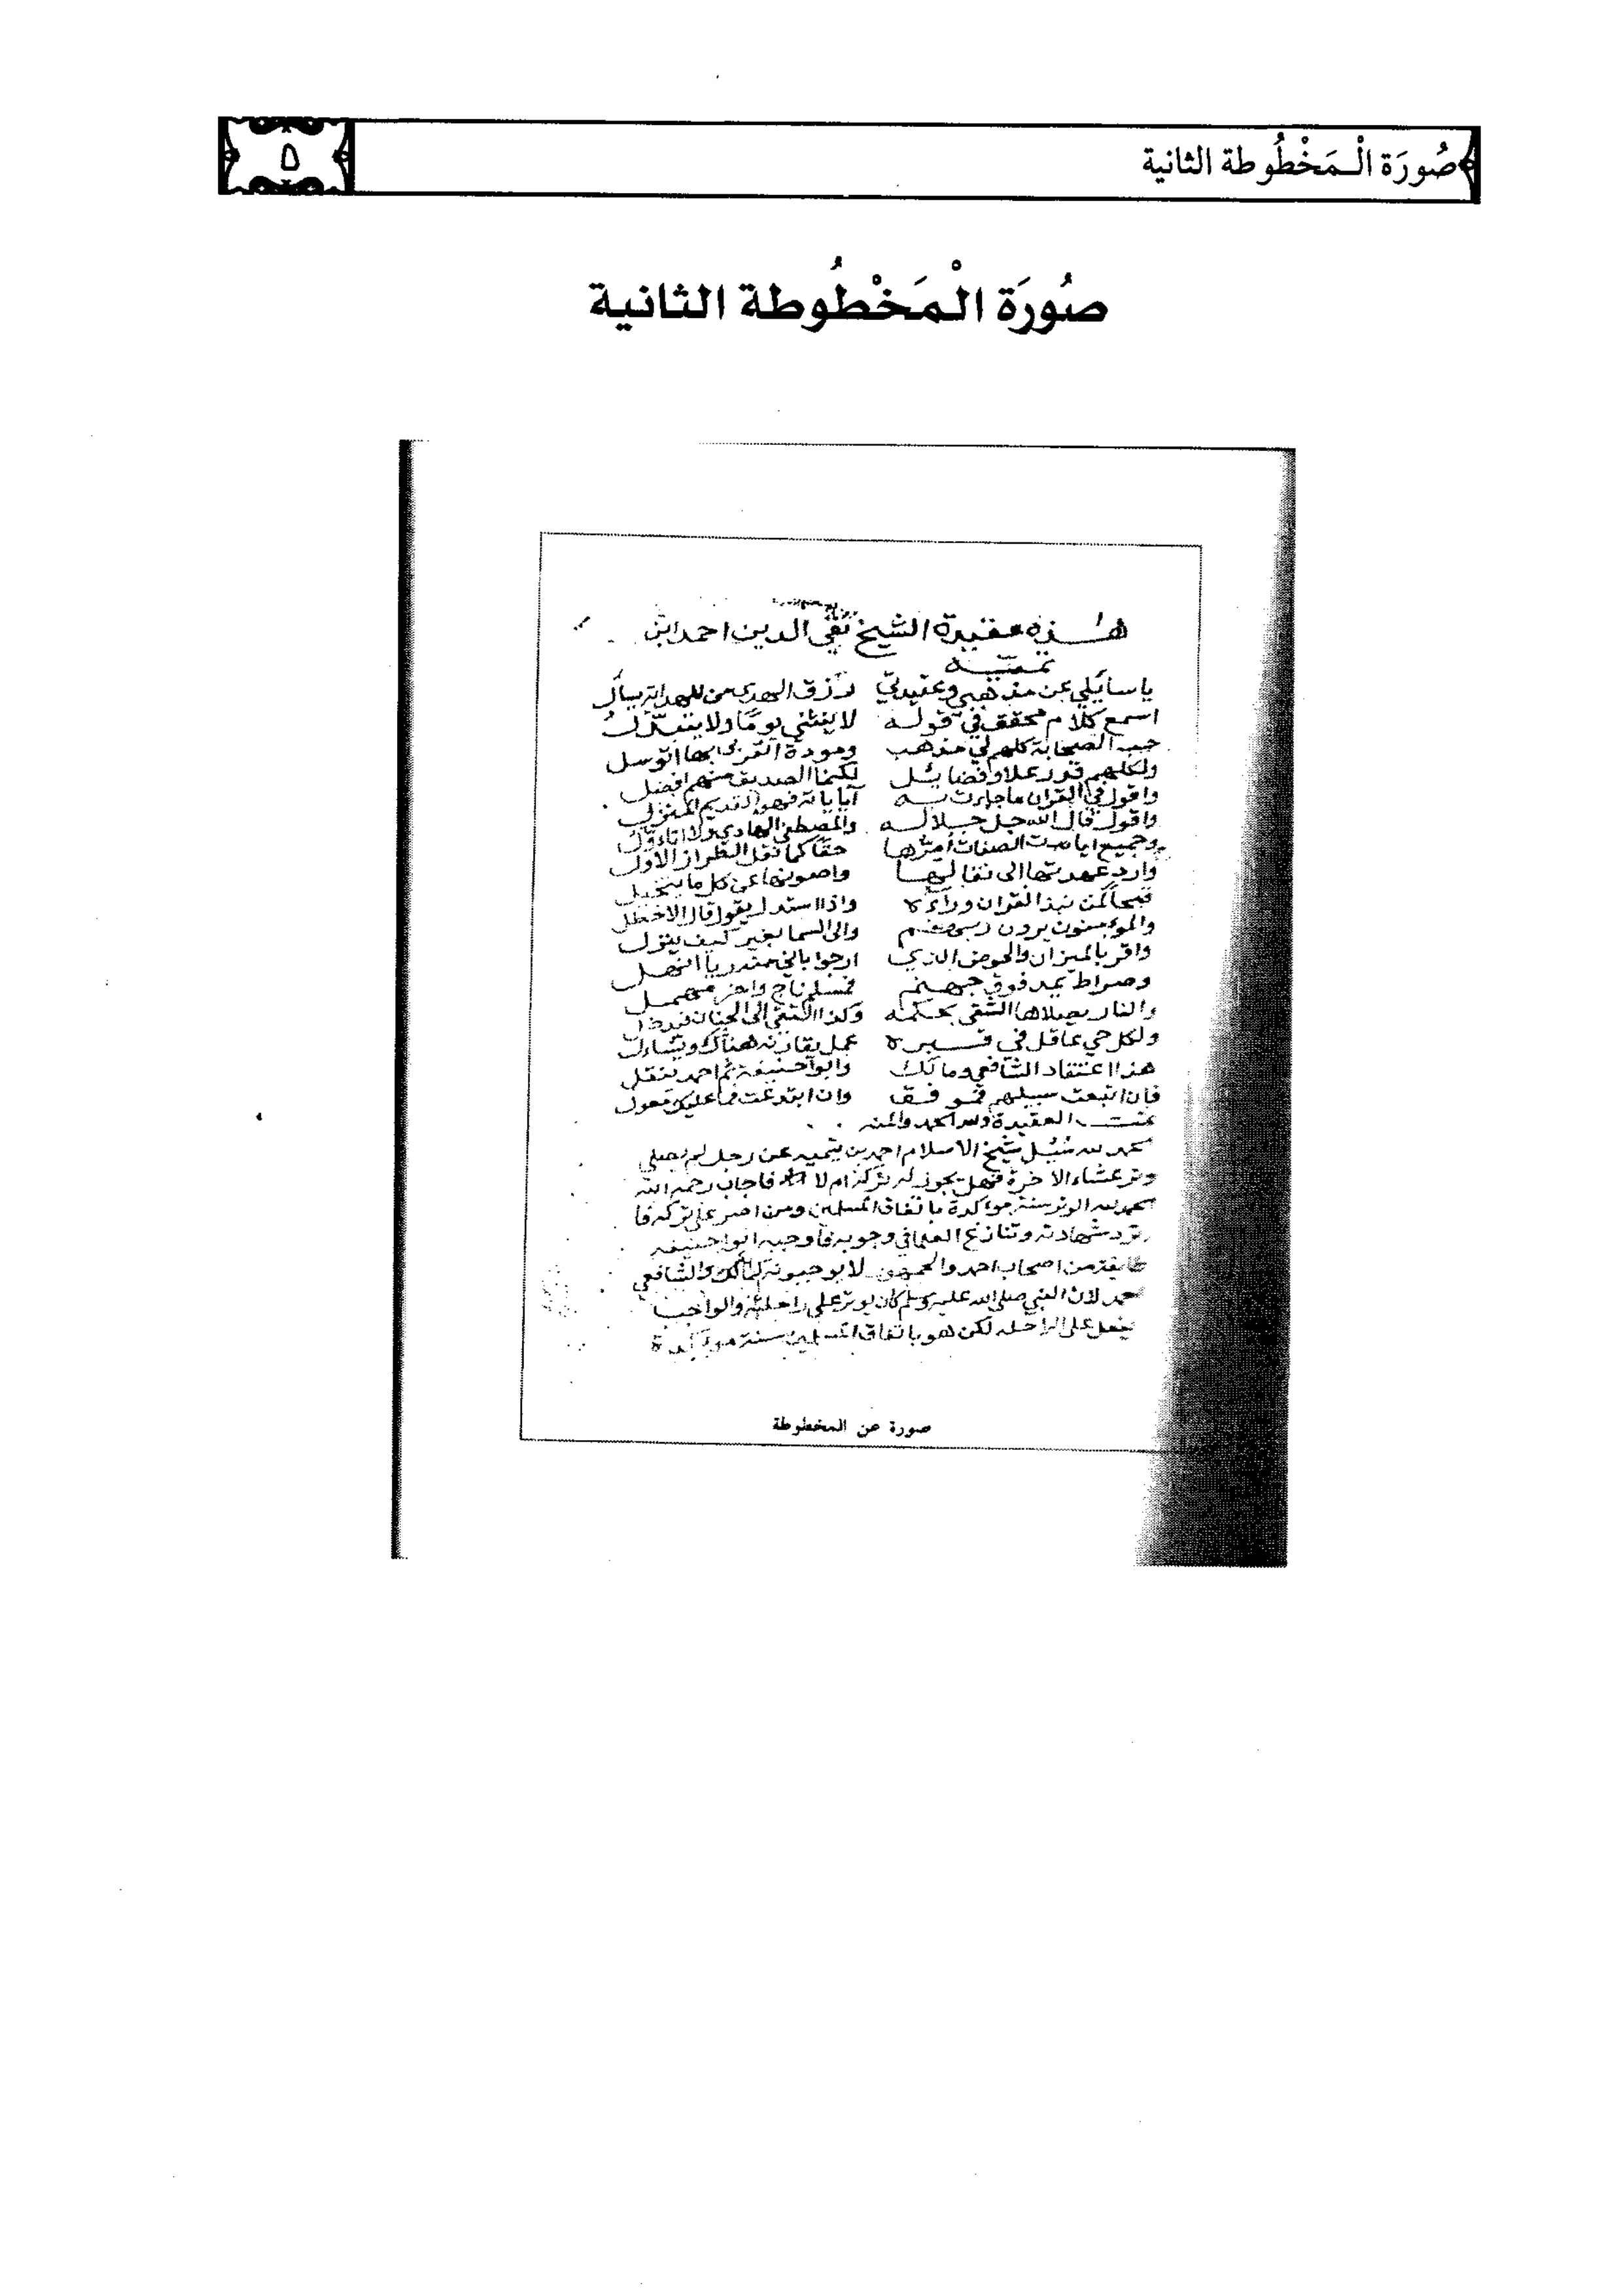 صُورَة الْمَخْطُوطة الثانية
٥
صُورَة الْمَخْطُوطة الثانية
هذه عقيدة الشيخ تقي الدين احمد ابن
تيميه
يا سايلي عن مذهبي وعقيدتي رزق الهدى من للهداية يسأل
اسمع كلام محقق في قوله لا ينثني يوما ولا يتبدل
حب الصحابة كلهم لي مذهب ومودة القربى بها اتوسل
ولكلهم قدر علا وفضايل لكنما الصديق منهم افضل
واقول في القران ما جاءت به آياته فهو القديم المنزل
واقول قال الله جل جلاله والمصطفى الهادي ولا اتاول
وجميع ايات الصفات امرها حقا كما نقل الطراز الاول
وارد عهدتها الى نقالها واصونها عن كل ما يتخيل
قبحا لمن نبذ القران وراءه واذا استدل يقول قال الاخطل
والمومنون يرون ربهم والى السما بغير كيف ينزل
واقر بالميزان والحوض الذي ارجوا باني منه ريا انهل
وصراط يمد فوق جهنم فمسلم ناج واخر مهمل
والنار يصلاها الشقي بحكمه وكذا التقي الى الجنان فيدخل
ولكل حي عاقل في قبره عمل يقارنه هناك ويسأل
هذا اعتقاد الشافعي ومالك وابو حنيفة ثم احمد ينقل
فان اتبعت سبيلهم فموفق وان ابتدعت فما عليك معول
تمت العقيدة ولله الحمد والمنه
الحمد لله سُئِل شيخ الاسلام احمد بن تيميه عن رجل لم يصلي
وتر عشاء الاخرة فهل يجوز له تركه ام لا فاجاب رحمه الله
الحمد لله الوتر سنة مواكدة باتفاق المسلمين ومن اصر على تركه فا
ترد شهادته وتنازع العلما في وجوبه فاوجبه ابو احنيفه
طايفة من اصحاب احمد والجمهور لا يوجبونه كمالك والشافعي
احمد لان النبي صلى الله عليه وسلم كان يوتر على راحلته والواجب
يفعل على الراحله لكن هو باتفاق المسلمين سنة موكدة
صورة عن المخطوطة